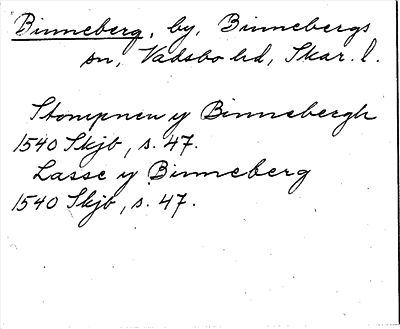 Binneberg, by, Binnebergs
sn, Vadsbo hd, Skar. l.
Stompnen y Binnebergh
1540 Skjb, s. 47.
Lasse y Binneberg
1540 Skjb, s. 47.